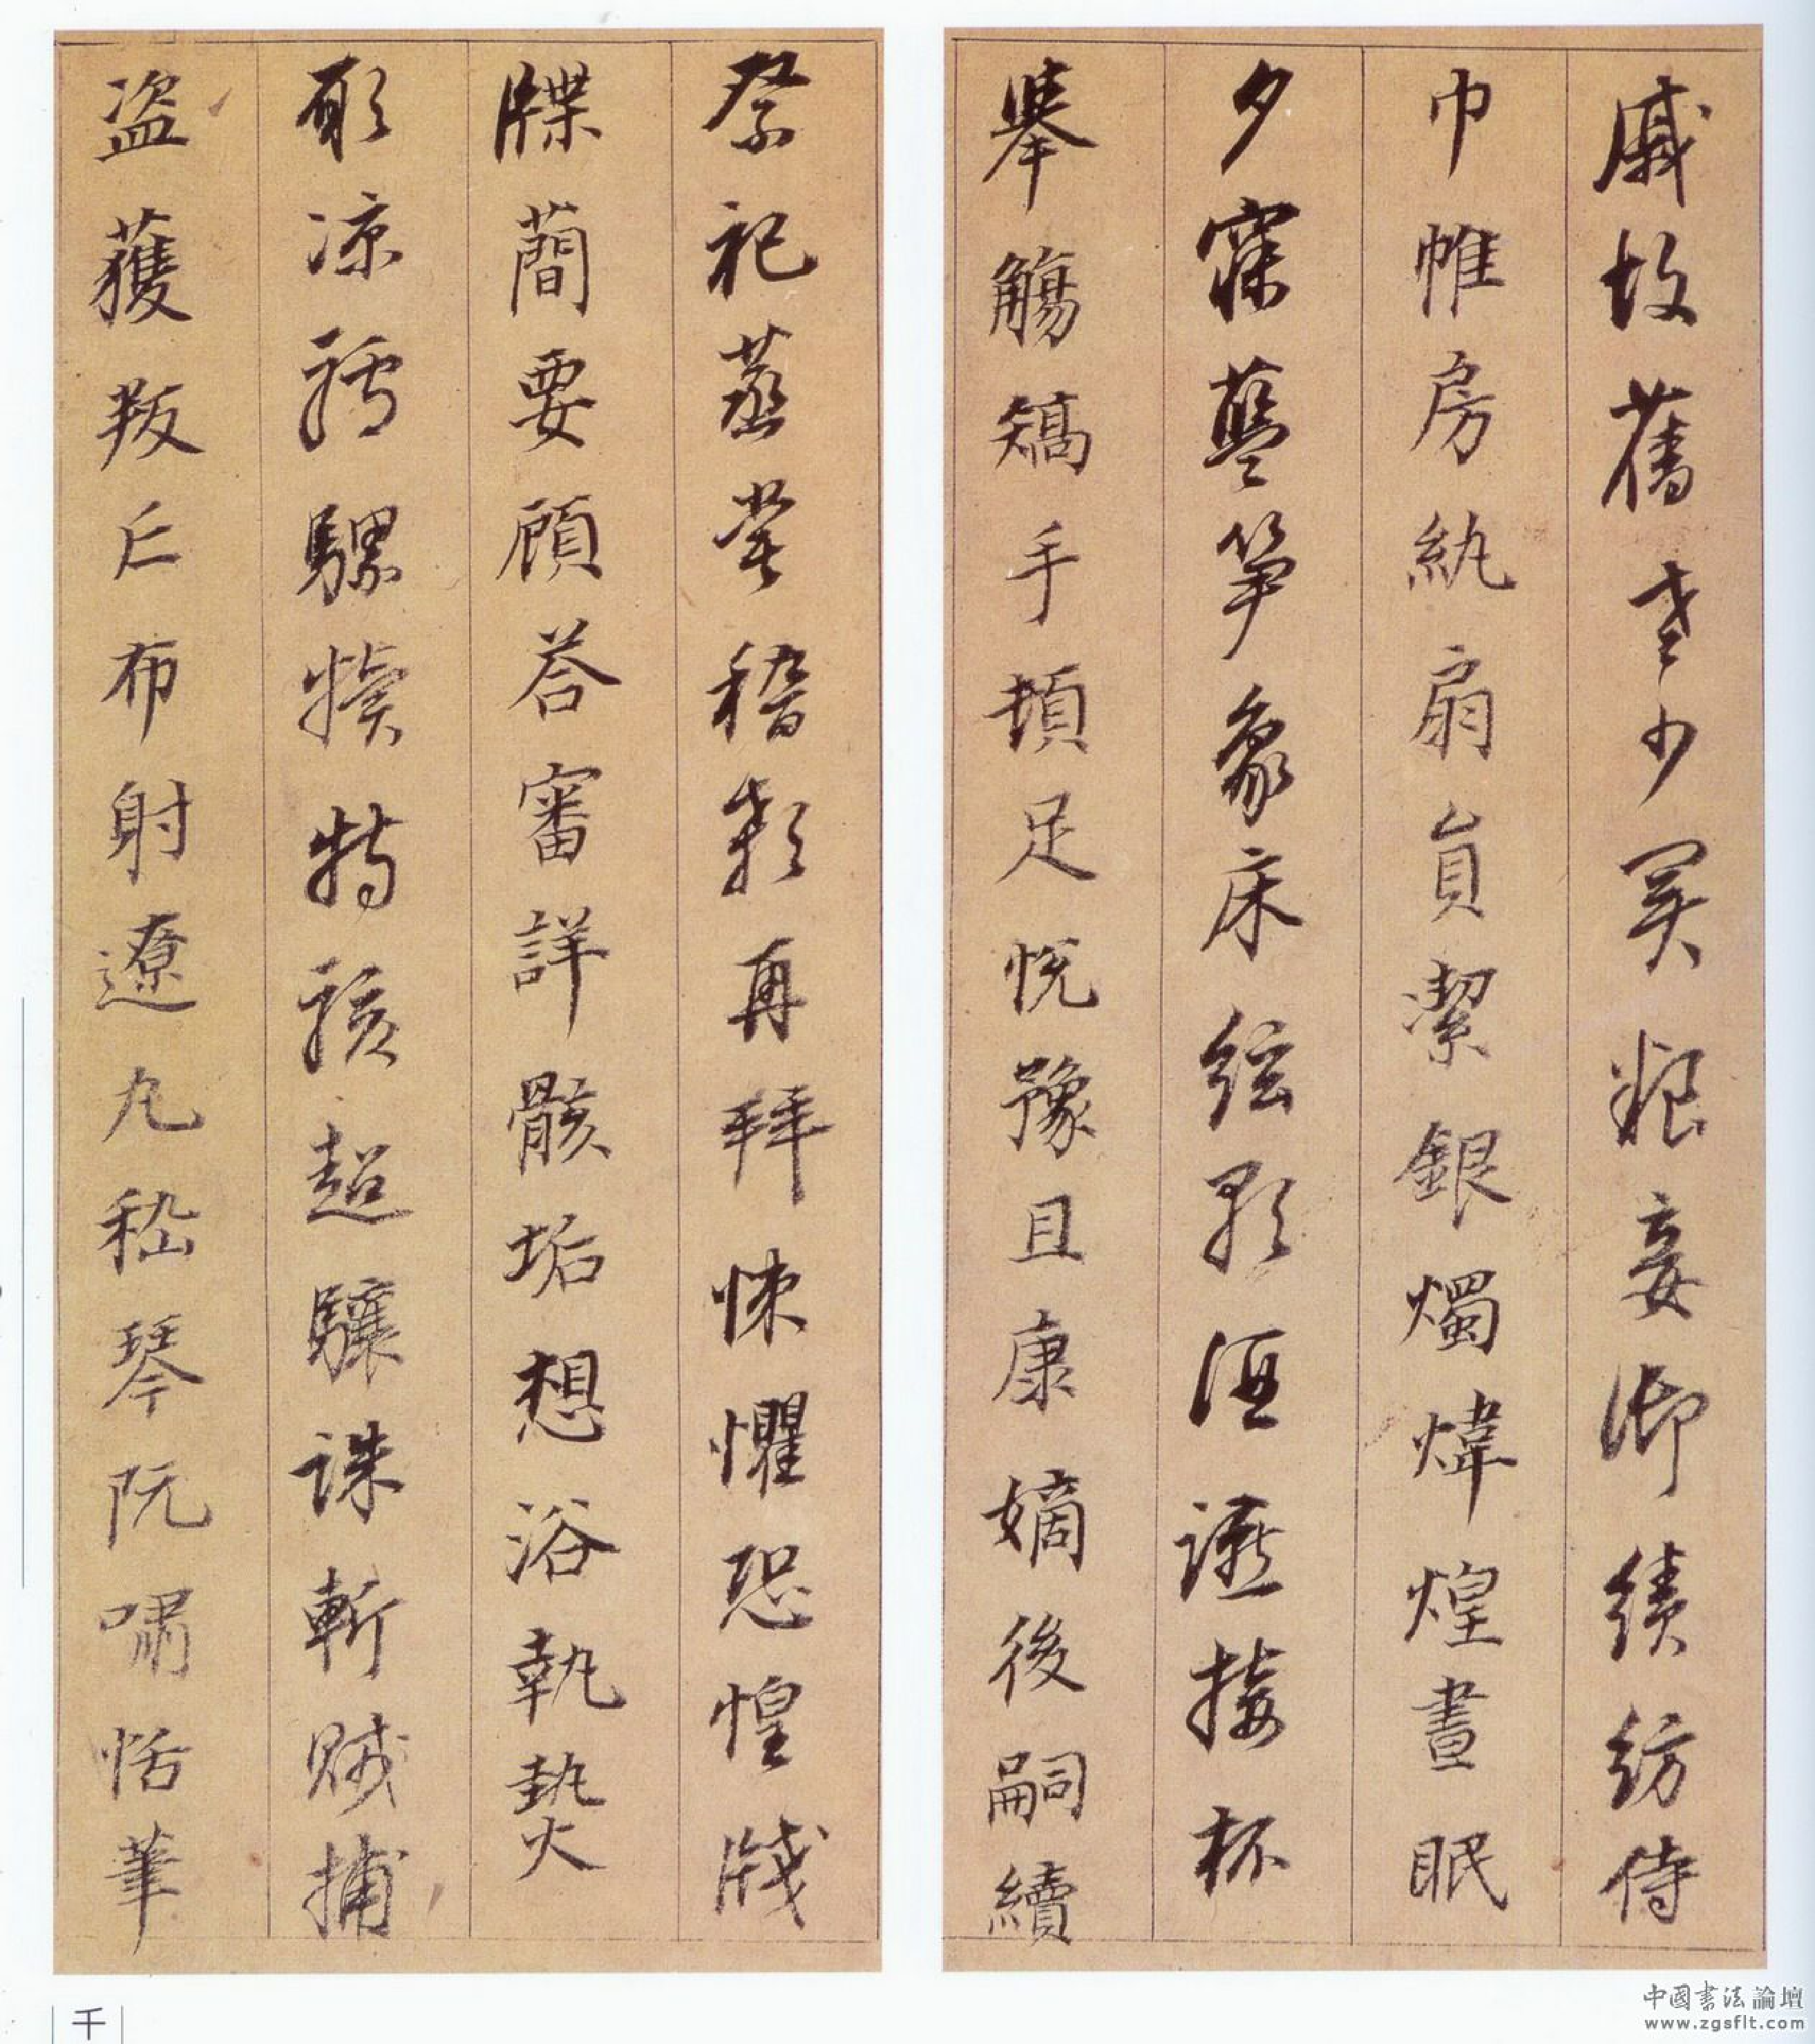 戚故舊老少異粮妾御績紡侍
巾帷房紈扇員潔銀燭煒煌晝眠
夕寐藍笋象床絃歌酒讌接杯
舉觴矯手頓足悅豫且康嫡後嗣續
祭祀蒸嘗稽顙再拜悚懼恐惶牋
牒蕳要顧荅審詳骸垢想浴執熱
願凉驢騾犢特駭超驤誅斬賊捕
盜獲叛亡布射遼丸嵇琴阮嘯恬筆
千
中國书法論壇
www.zgsflt.com